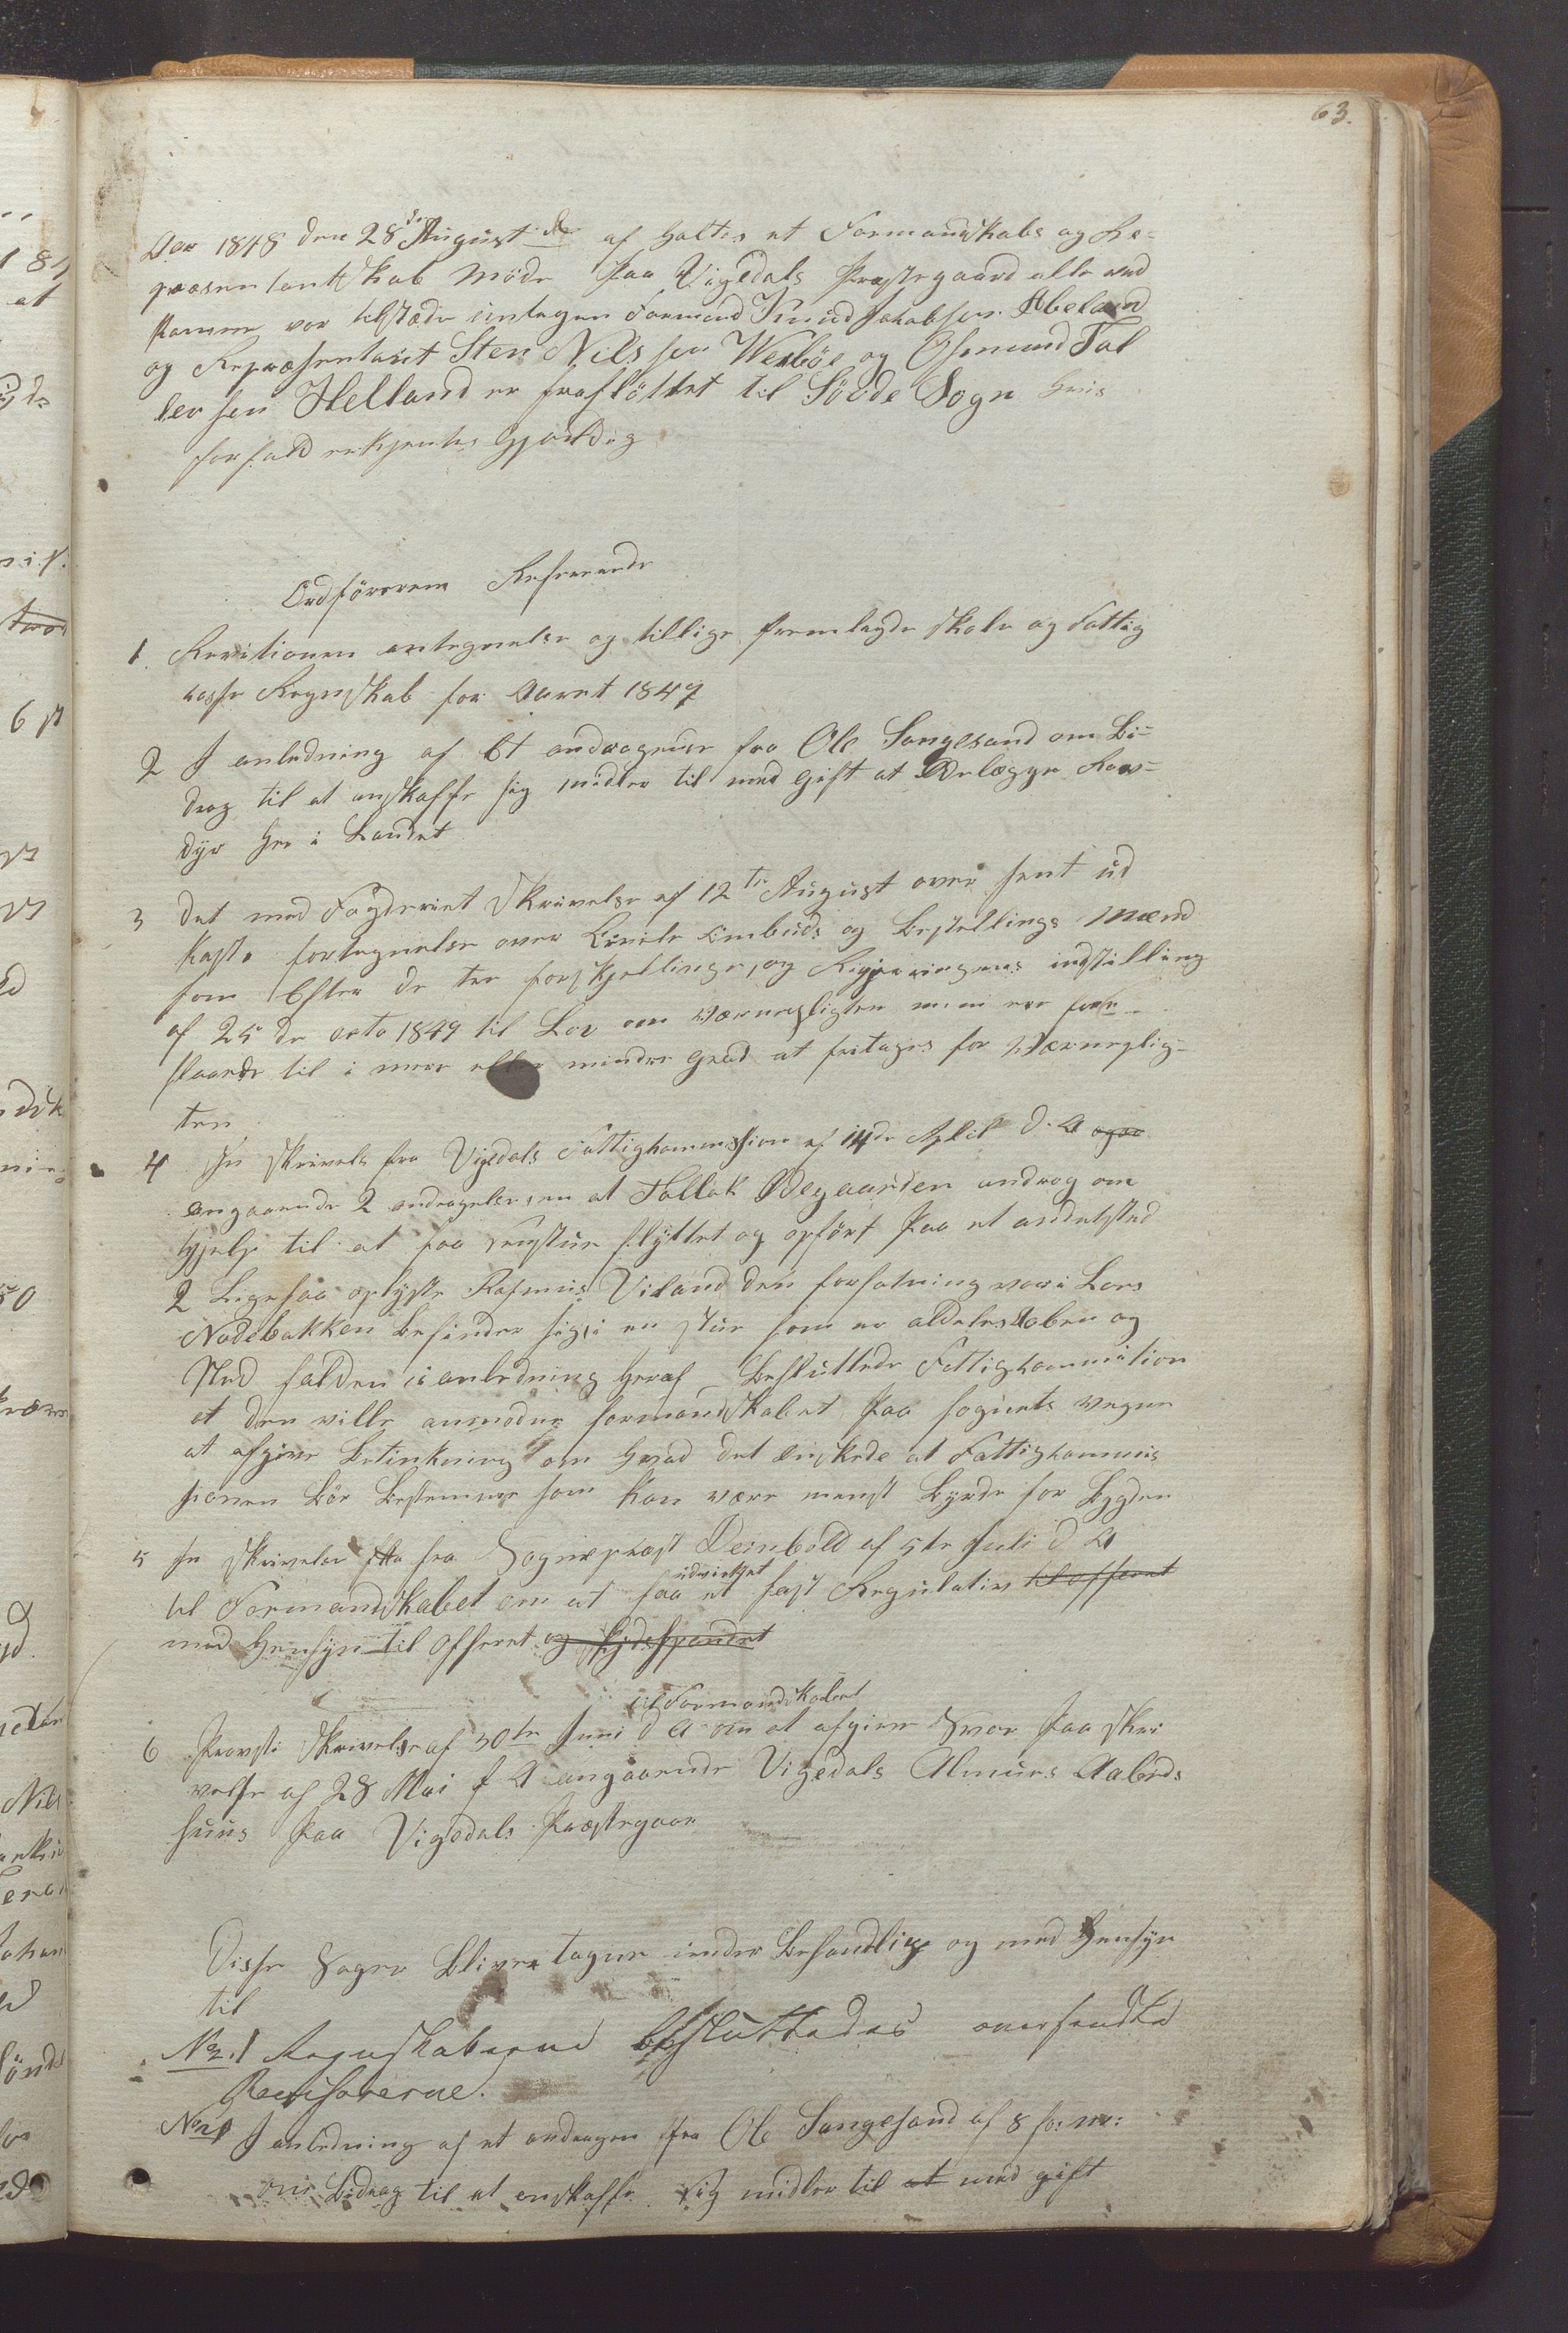 63.
Aar 1848 den 28de August af Holtes et Formandskabs og Re-
præsentantskab Möde paa Vigedals Præstegaard alle ved
kommer var tilstæde untagen Formand Knud Jakobsen Abeland
og Repræsentant Sten Nilssen Westbøe og Osmund Tal
lersen Helland er fraflöttet til Sövde Sogn hvis
forfald erkjentes Gjældig
Ordförerem Refererede
1. Revitionen antegnelse og tillige fremlagde skole og Fattig
kasse Regnskab for Aaret 1847
2 I anledning af Et andragener fra Ole Sangesand om Bi-
drag til at anskaffe sig midler til med Gift at Ødelægge Rov-
dyr her i Landet
3 Det med Fogderiet Skrivelse af 12te August over sent ud
kast. fortegnelse over Civile Embuds og Bestellings Mænd
som Efter de tre forskjellige, og Regjeringens indstilling
af 25de octo 1847 til Lov om Værnepligten m.m er fore
slaaede til i mere eller mindre Grad at fritages for Værneplig-
ten
4 En Skrivelse fra Vigedals Fattigkommission af 14de April d. A
angaaende 2 andragelser, en at Tollak Ødegaarden androg om
Hjelp til at faa en stue flyttet og opfört paa et andetsted
2 Ligesaa oplyste Rasmus Viland den forfatning vori Lars
Nodebakken befinder sig, i en stue som er aldeles Aaben og
Ned falden i anledning heraf Besluttede Fattigkommition
at den ville anmode formandskabet paa sognets vegne
at afgive Betinkning om Hvad det önskede at Fattigkommis
sionen bör bestemme som kan være menst Byrde for Bygden
5 En Skrivelse fra Sognepræst Deinbold af 5te Juli d A
udvirket
til Formandskabet om at faa et fast Regulativ til offeret
med Hensyn til Offeret og
til Formandskabet
6 Provsti Skrivelse af 30te Juni d A om at afgive Svar paa skri
velse af 28 Mai f A angaaende Vigedals Almues Aabods
huus paa Vigedals Præstegaar
Disse Sager Bliver tagne under Behandling og med Hensyn
til
No. 1 Regnskaberne besluttedes oversendte
Revisorerne.
No 2 I anledning af et andragen fra Ole Sangesand af 8 f: m:
om Bidrag til at anskaffe sig midler til at med gift